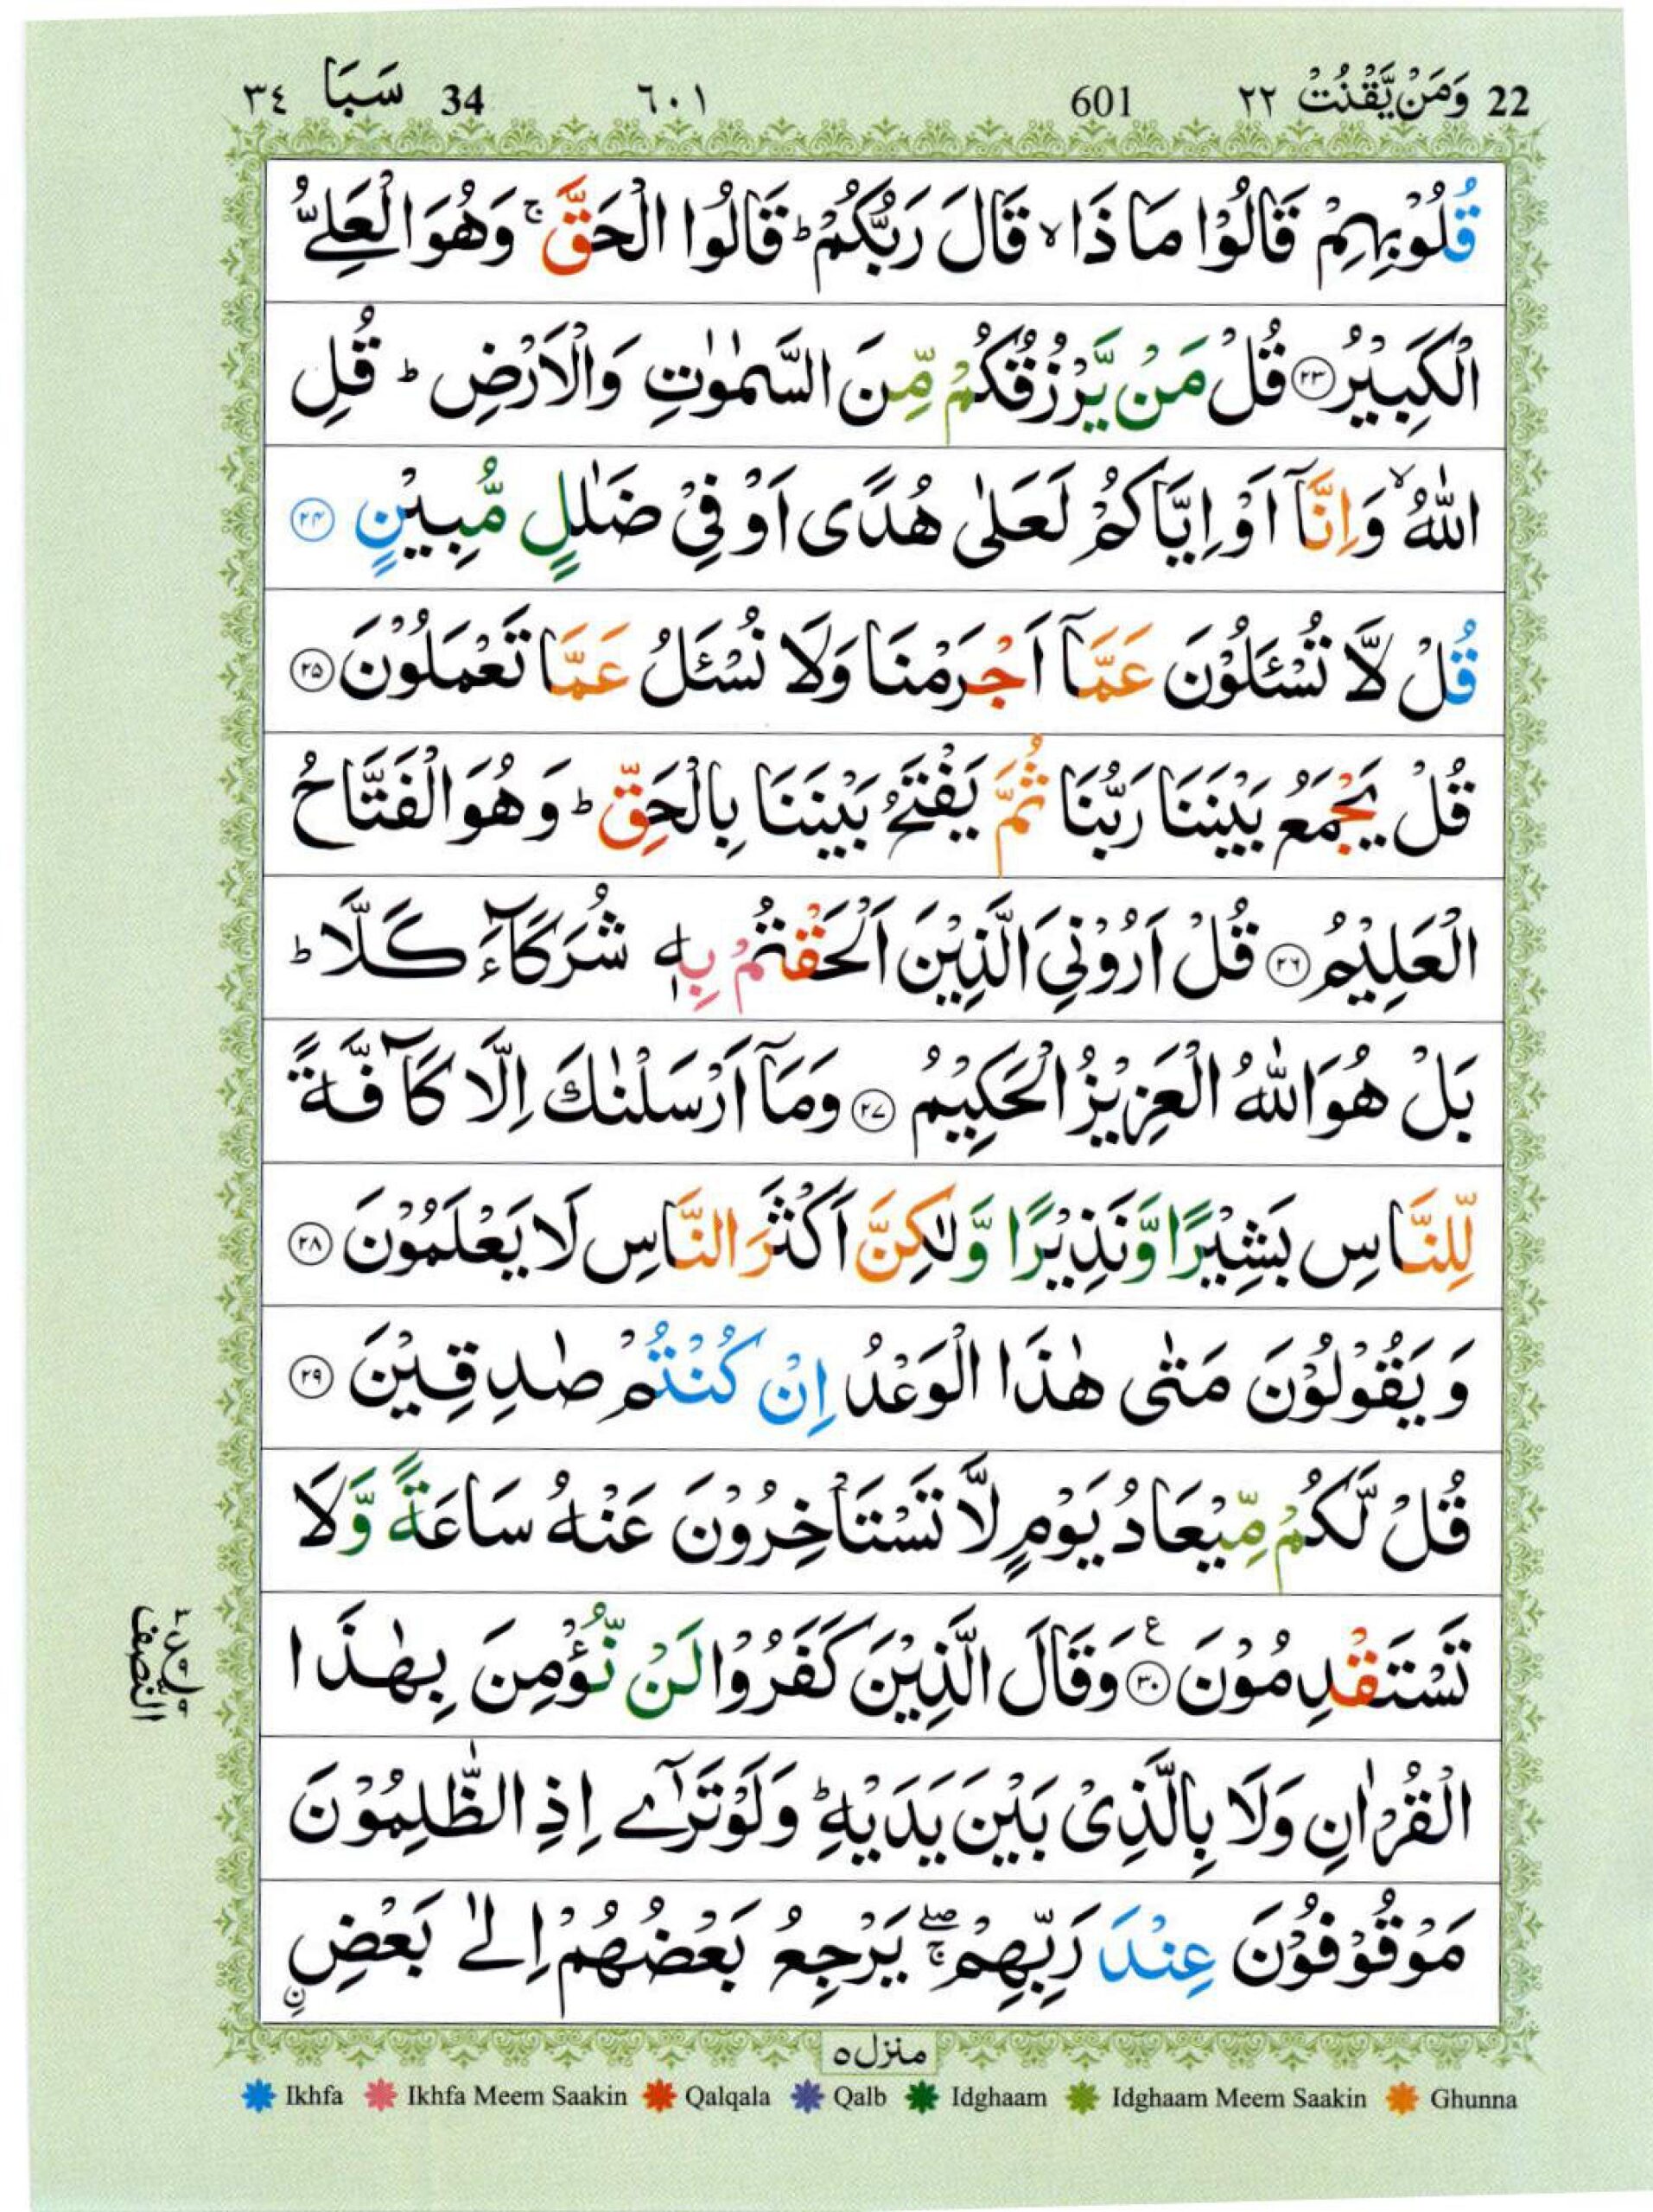 22 وَمَنْ يَّقْنُتْ ٢٢ 601 ٦٠١ 34 سَبَا ٣٤
قُلُوْبِهِمْ قَالُوْا مَا ذَا ۙ قَالَ رَبُّكُمْ ؕ قَالُوا الْحَقَّ ۚ وَهُوَ الْعَلِيُّ
الْكَبِيْرُ ۝۲۳ قُلْ مَنْ يَّرْزُقُكُمْ مِّنَ السَّمٰوٰتِ وَالْاَرْضِ ؕ قُلِ
اللّٰهُ ۙ وَاِنَّاۤ اَوْ اِيَّاكُمْ لَعَلٰى هُدًى اَوْ فِيْ ضَلٰلٍ مُّبِيْنٍ ۝۲۴
قُلْ لَّا تُسْـَٔلُوْنَ عَمَّاۤ اَجْرَمْنَا وَلَا نُسْـَٔلُ عَمَّا تَعْمَلُوْنَ ۝۲۵
قُلْ يَجْمَعُ بَيْنَنَا رَبُّنَا ثُمَّ يَفْتَحُ بَيْنَنَا بِالْحَقِّ ؕ وَهُوَ الْفَتَّاحُ
الْعَلِيْمُ ۝۲۶ قُلْ اَرُوْنِيَ الَّذِيْنَ اَلْحَقْتُمْ بِهٖ شُرَكَآءَ كَلَّا ؕ
بَلْ هُوَ اللّٰهُ الْعَزِيْزُ الْحَكِيْمُ ۝۲۷ وَمَاۤ اَرْسَلْنٰكَ اِلَّا كَآفَّةً
لِّلنَّاسِ بَشِيْرًا وَّنَذِيْرًا وَّلٰكِنَّ اَكْثَرَ النَّاسِ لَا يَعْلَمُوْنَ ۝۲۸
وَيَقُوْلُوْنَ مَتٰى هٰذَا الْوَعْدُ اِنْ كُنْتُمْ صٰدِقِيْنَ ۝۲۹
قُلْ لَّكُمْ مِّيْعَادُ يَوْمٍ لَّا تَسْتَاْخِرُوْنَ عَنْهُ سَاعَةً وَّلَا
تَسْتَقْدِمُوْنَ ۝۳۰ ع وَقَالَ الَّذِيْنَ كَفَرُوْا لَنْ نُّؤْمِنَ بِهٰذَا
الْقُرْاٰنِ وَلَا بِالَّذِيْ بَيْنَ يَدَيْهِ ؕ وَلَوْ تَرٰٓى اِذِ الظّٰلِمُوْنَ
مَوْقُوْفُوْنَ عِنْدَ رَبِّهِمْ ۖۚ يَرْجِعُ بَعْضُهُمْ اِلٰى بَعْضِ ن
النصف
منزل ٥
Ikhfa Ikhfa Meem Saakin Qalqala Qalb Idghaam Idghaam Meem Saakin Ghunna